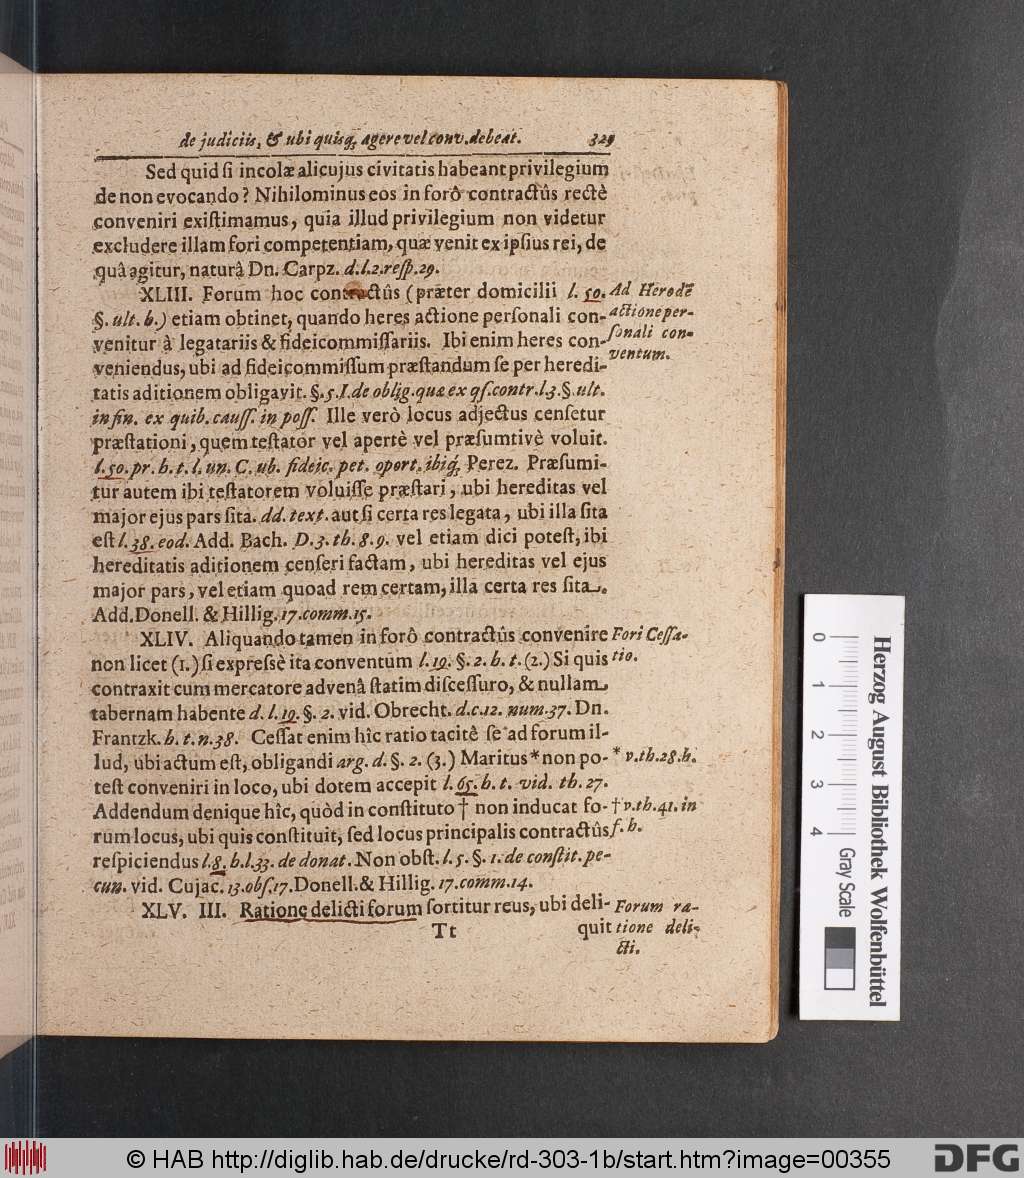 de judiciis, & ubi quisq; agere vel conv. debeat. 329
Sed quid si incolæ alicujus civitatis habeant privilegium
de non evocando? Nihilominus eos in forô contractûs rectè
conveniri existimamus, quia illud privilegium non videtur
excludere illam fori competentiam, quæ venit ex ipsius rei, de
quâ agitur, naturâ Dn. Carpz. d. l. 2. resp. 29.
XLIII. Forum hoc contractûs (præter domicilii l. 50.
§. ult. h.) etiam obtinet, quando heres actione personali con-
venitur à legatariis & fideicommissariis. Ibi enim heres con-
veniendus, ubi ad fideicommissum præstandum se per heredi-
tatis aditionem obligavit. §. 5. I. de oblig. quæ ex qs. contr. l. 3. §. ult.
in fin. ex quib. causs. in poss. Ille verò locus adjectus censetur
præstationi, quem testator vel apertè vel præsumtivè voluit.
l. 50. pr. h. t. l. un. C. ub. fideic. pet. oport. ibiq; Perez. Præsumi-
tur autem ibi testatorem voluisse præstari, ubi hereditas vel
major ejus pars sita. dd. text. aut si certa res legata, ubi illa sita
est l. 38. eod. Add. Bach. D. 3. th. 8. 9. vel etiam dici potest, ibi
hereditatis aditionem censeri factam, ubi hereditas vel ejus
major pars, vel etiam quoad rem certam, illa certa res sita.
Add. Donell. & Hillig. 17. comm. 15.
Ad Heredẽ
actione per-
sonali con-
ventum.
XLIV. Aliquando tamen in forô contractûs convenire
non licet (1.) si expressè ita conventum l. 19. §. 2. h. t. (2.) Si quis
contraxit cum mercatore advenâ statim discessuro, & nullam
tabernam habente d. l. 19. §. 2. vid. Obrecht. d. c. 12. num. 37. Dn.
Frantzk. h. t. n. 38. Cessat enim hîc ratio tacitè se ad forum il-
lud, ubi actum est, obligandi arg. d. §. 2. (3.) Maritus * non po-
test conveniri in loco, ubi dotem accepit l. 65. h. t. vid. th. 27.
Addendum denique hîc, quòd in constituto † non inducat fo-
rum locus, ubi quis constituit, sed locus principalis contractûs
respiciendus l. 8. h. l. 33. de donat. Non obst. l. 5. §. 1. de constit. pe-
cun. vid. Cujac. 13. obs. 17. Donell. & Hillig. 17. comm. 14.
Fori Cessa-
tio.
* v. th. 28. h.
† v. th. 41. in
f. h.
XLV. III. Ratione delicti forum sortitur reus, ubi deli-
Tt quit
Forum ra-
tione deli-
cti.
0 1 2 3 4 Gray Scale
Herzog August Bibliothek Wolfenbüttel
© HAB http://diglib.hab.de/drucke/rd-303-1b/start.htm?image=00355
DFG